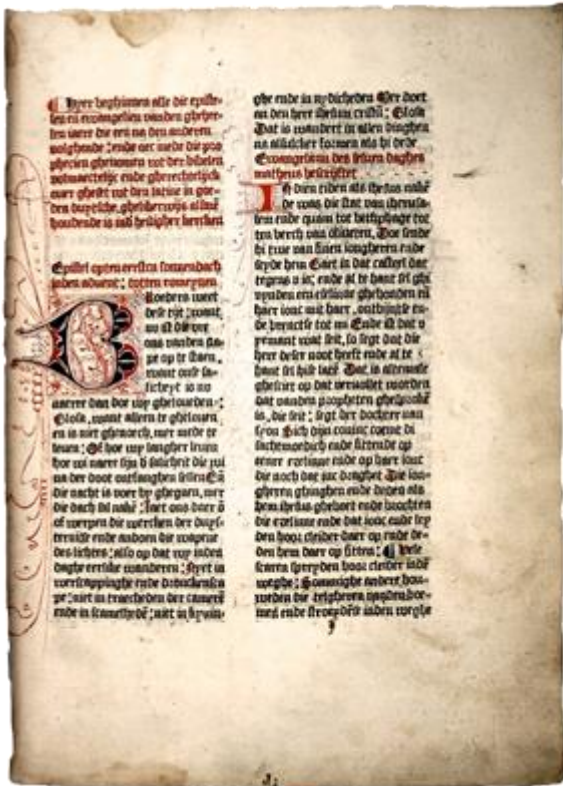 Hyer beghinnen alle die episte-
len en ewangelien vanden gheheel-
len iaere die een na den anderen
volghende: ende oec mede die pro
phecien ghenomen wt der bibelen
ende gherechtelijck
over gheset wt den latine in goe-
den duytsche, ghelikerwijs alsmen
houdende is ind heiligher kercken
Epistel opten eersten sonnendach
inden advent: totten romeynen
BRoeders weet
dese tijt: want
nu is die vre
ons vanden sla-
pe op te staen.
want onse sa-
licheyt is nu
naerre dan doe wy gheloeueden:
Glosa. want alleen te ghelouen
en is niet ghenoech, mer mede te
leuen: Of hoe wy langher leuen
hoe wi naerre sijn d salicheit die wi
na der doot ontfanghen sellen Een
die nacht is voer by ghegaen, mer
die dach sal naken Laet ons daer o
of werpen die wercken der duys-
ternisse ende andoen die wapene
des lichtes: also op dat wy inden
daghe eerlike wanderen: Nyet in
ende dronckensca
pe: niet in der cameren
ende in: niet in
ghe ende in nydicheden Mer doet
an den here ihesum cristum: Glosa
Dat is wandert in allen dinghen
na alsulcker formen als hi dede
Ewangelium des seluen daghes
matheus bescrijftet
IN dien tiden als ihesus naken
de was die stat van iherusa-
lem ende quam tot bethphage tot
ten berch van oliueten, Doe sende
hi twe van sinen iongheren ende
seyde hem Gaet in dat casteel dat
tegens v is: ende al te hant sel ghi
vynden een eselinne ghebonden en
haer ionc mit haer, ontbijntse en
de brenctse tot mi Ende is dat v
yemant wat seit, so segt dat die
here deser noot heeft ende al te
hant sel hise laten Dat is altemale
ghesciet op dat veruollet worden
dat vanden propheten ghesproken
is, die seit: segt der dochter van
syon Sich dijn coninc coemt di
sachtmoedich ende sittende op
eenre eselinne ende op haer ionc
die noch dat iuc draghet Die ion-
gheren ghinghen ende deden als
hem ihesus gheboet ende brochten
die eselinne ende dat ionc ende ley
den hoer cleider daer op ende de-
den hem daer op sitten: Vele
scaren spreyden hoer cleider inden
weghe: Sommighe andere hou-
weden die telgheren vanden bo-
men ende stroeydense inden weghe